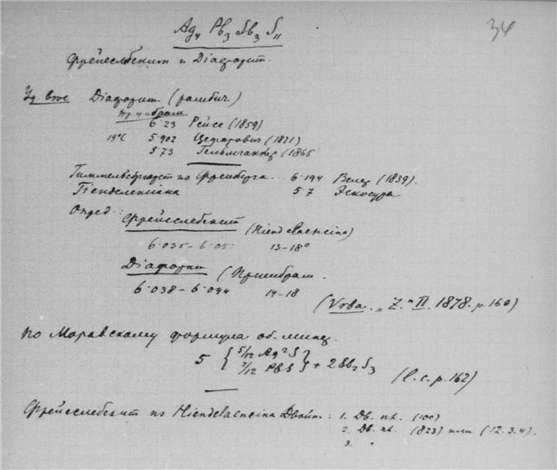 34
Ag₄ Pb₃ Sb₃ S₁₁
Фрейеслебенит и Диафорит.
Уд. вес Диафорит (ромбич.)
Пршибрам
6·23 Рейсс (1859)
19°C 5·902 Цефарович (1871)
5·73 Гельмгаккер (1865
Гиммельсфюрст по Фрейберга. 6·194 Велер (1839).
Гиенделенсина 5·7 Эскосура
Опред:
Фрейеслебенит (Hiendelaencina)
6·035 – 6·05 13–18°
Диафорит (Пршибрам.
6·038 – 6·044 14–18
(Vrba. „Z." II. 1878. p. 160)
По Моравскому формула об. минер.
5 { 5/12 Ag²S } + 2Sb₂S₃
7/12 PbS
(l. c. p. 162)
Фрейеслебенит из Hiendelaencina Двойн.: 1. Дв. пл. (100)
2. Дв. пл. (823) или (12.3.4).
3. "